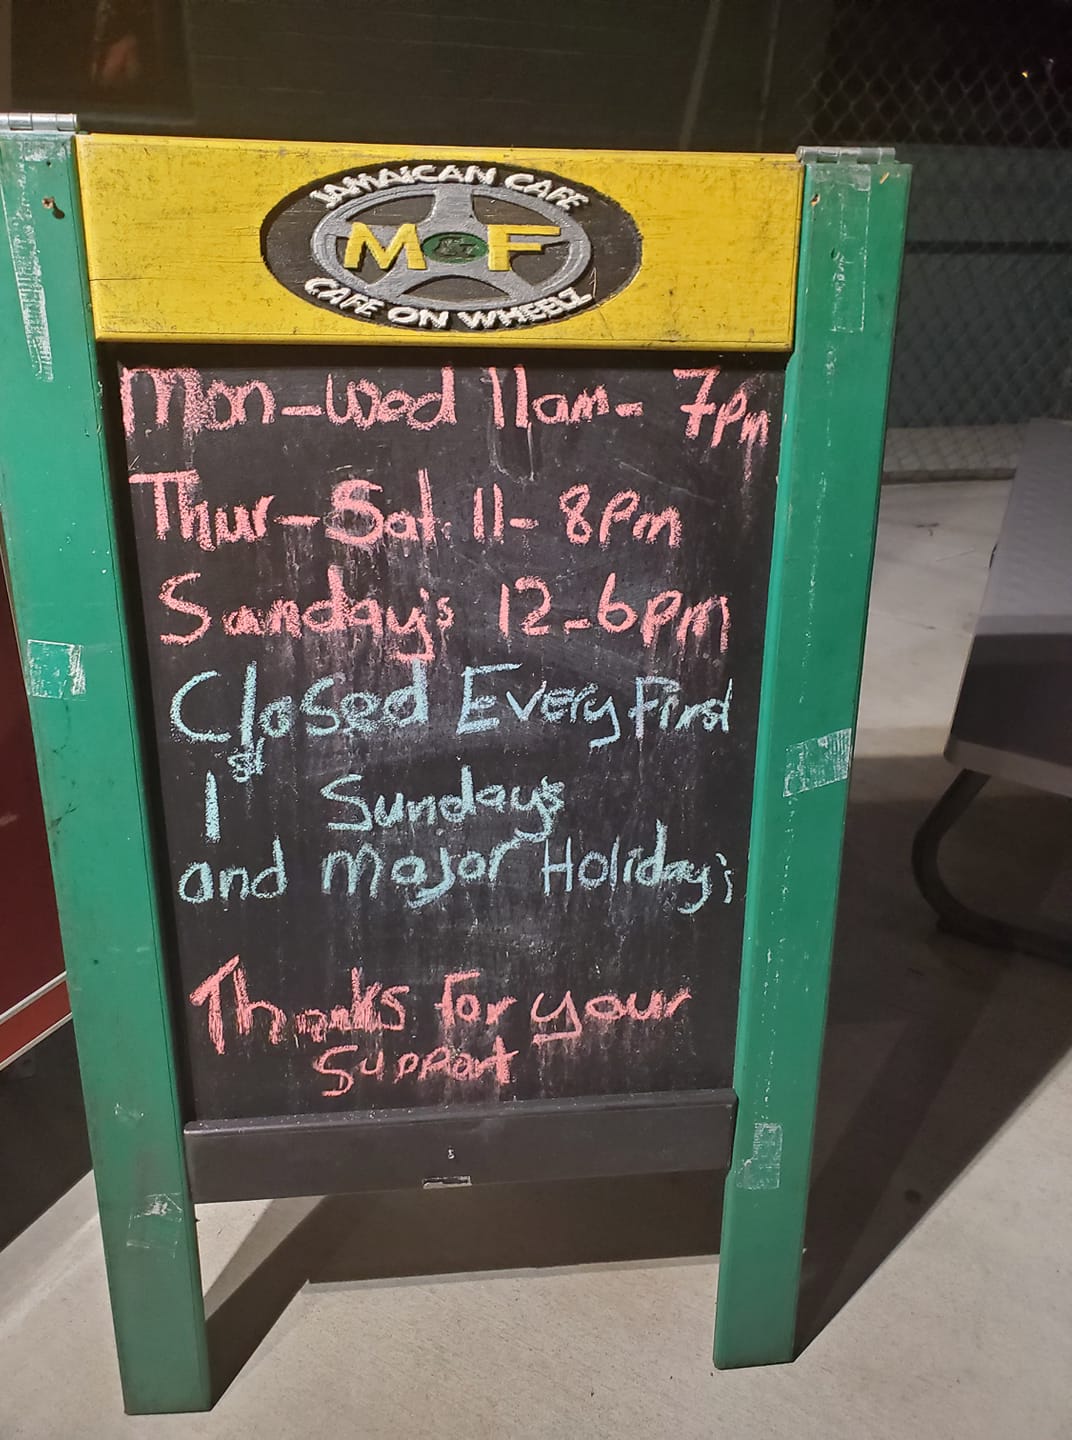 JAMAICAN CAFE
M & F
CAFE ON WHEELZ
Mon-Wed 11am- 7pm
Thur-Sat. 11- 8pm
Sunday's 12-6pm
Closed Every First
1st Sunday's
and major Holiday's
Thanks for your
Support